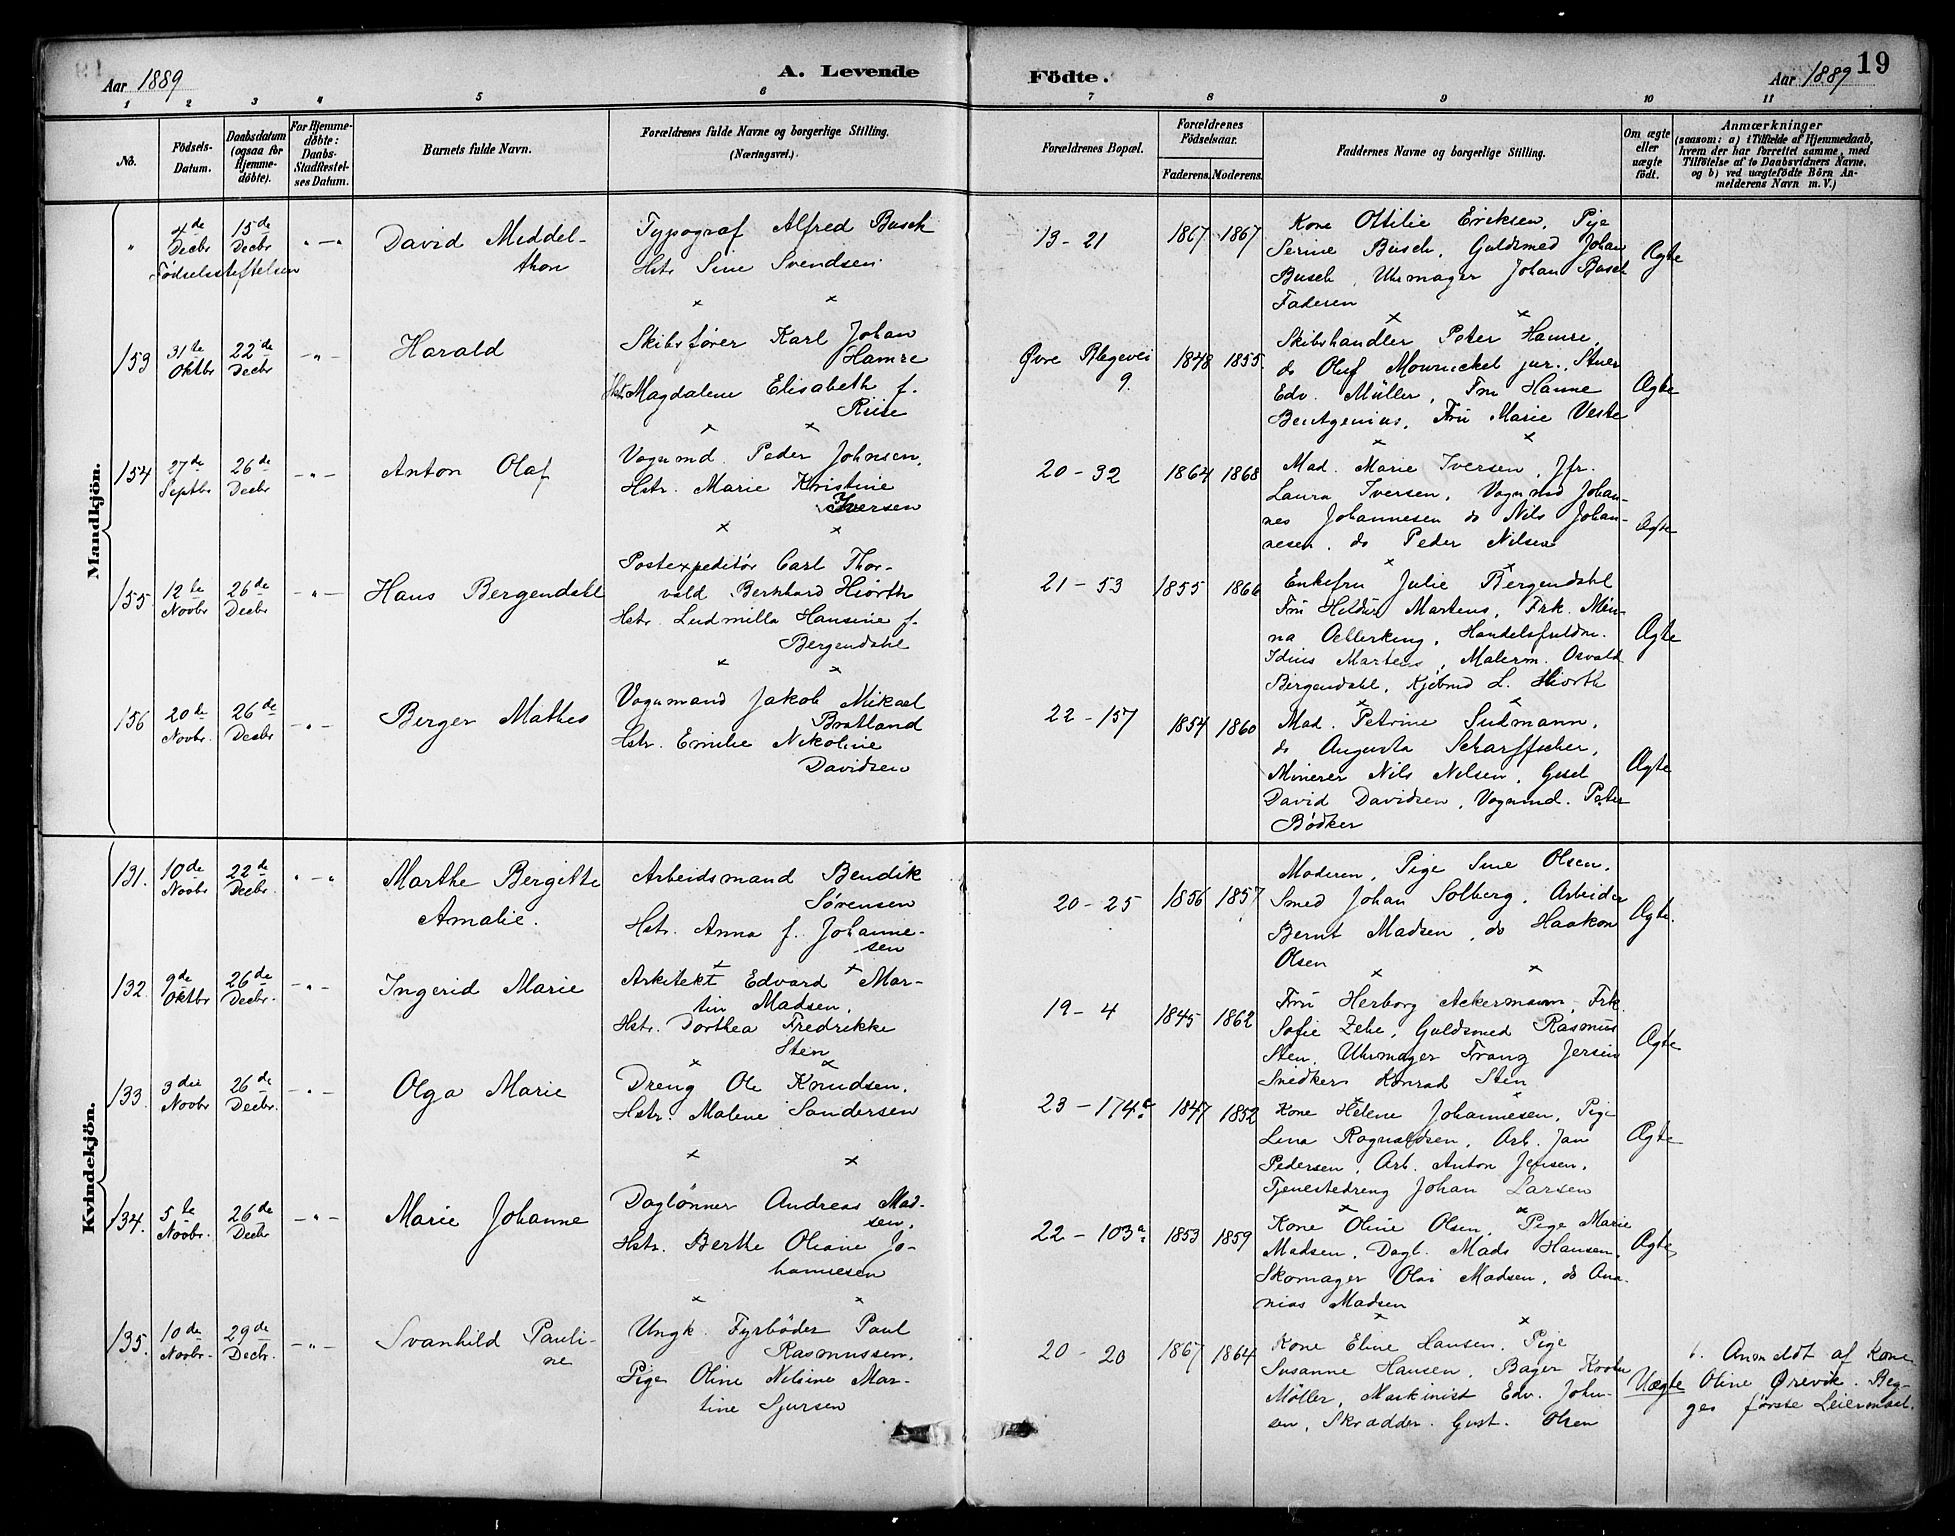 Aar 1889
A. Levende
Födte.
Aar 1889
19
1 2 3 4 5 6 7 8 9 10 11
No.
Födsels-
Datum.
Daabsdatum
(ogsaa for
Hjemme-
döbte).
For Hjemme-
döbte:
Daabs-
Stadfæstel-
ses Datum.
Barnets fulde Navn.
Forældrenes fulde Navne og borgerlige Stilling.
(Næringsvei.)
Forældrenes Bopæl.
Forældrenes
Födselsaar.
Faderens.
Moderens.
Faddernes Navne og borgerlige Stilling.
Om ægte
eller
uægte
født.
Anmærkninger
(saasom: a) i Tilfælde af Hjemmedaab,
hvem der har forrettet samme, med
Tilføielse af to Daabsvidners Navne,
og b) ved uægtefödte Börn An-
melderens Navn m. V.)
Mandkjön.
" 4de Decbr 15de Decbr
Fødselsstiftelsen
David Middel-
thon
Typograf Alfred Busch
Hstr Sine Svendsen
13-21
1867 1867
Kone Ottilie Eriksen, Pige
Serine Busch, Guldsmed Johan
Busch, Uhrmager Johan Busch
Faderen
Ægte
153 31te Oktbr 22de Decbr
Harald
Skibsfører Karl Johan
Hamre
Hstr. Magdalene Elisabeth f.
Riise
Øvre Blegevei
9.
1848 1855
Skibshandler Peter Hamre,
do Oluf Mowinckel jur., Stuer
Edv. Müller, Fru Hanne
Fru Marie Veste
Ægte
154 27de Septbr 26de Decbr
Anton Olaf
Vognmd. Peder Johnsen,
Hstr. Marie Kristine
Iversen
20-32
1864 1868
Mad. Marie Iversen, Jfr.
Laura Iversen, Vognmd Johan-
nes Johannesen do Nils Johan-
nesen, do Peder Nilsen
Ægte
155 12te Novbr 26de Decbr
Hans Bergendahl
Postexpeditör Carl Thor-
vald Bernhard Hiorth
Hstr. Ludmilla Hansine f.
Bergendahl
21-53
1855 1866
Enkefru Julie Bergendahl
Fru Martens, Frk. Min-
na Oelkerking, Handelsfuldm.
Martens, Malerm. Osvald
Bergendahl, Kjøbmd L. Hiorth
Ægte
156 20de Novbr. 26de Decbr
Berger Mathes
Vognmand Jakob Mikael
Bratland
Hstr. Emilie Nikoline
Davidsen
22-157
1854 1860
Mad. Petrine Sudmann,
do Augusta Scharffscher,
Minerer Nils Nilsen, Gesel
David Davidsen, Vognmd. Peter
Bödker
Ægte
Kvindekjön.
131. 10de Novbr 22de Decbr.
Marthe Bergitte
Amalie.
Arbeidsmand Bendik
Sørensen
Hstr. Anna f. Johanne-
sen
20-25
1856 1857
Moderen, Pige Sine Olsen,
Smed Johan Solberg, Arbeider
Bernt Madsen, do Haakon
Olsen
Ægte.
132. 9de Oktbr 26de Decbr.
Ingerid Marie
Arkitekt Edvard Mar-
tin Madsen,
Hstr. Dorthea Fredrikke
Sten
19-4
1845 1862
Fru Herborg Ackermann, Frk.
Sofie Zehe, Guldsmed Rasmus
Sten, Uhrmager Franz Jersin
Snedker Konrad Sten
Ægte
133. 3die Novbr 26de Decbr.
Olga Marie
Dreng Ole Knudsen,
Hstr. Malene Sandersen
23-174a
1847 1852
Kone Helene Johannesen, Pige
Lina Rognaldsen, Arb. Jan
Pedersen, Arb. Anton Jensen,
Tjenestedreng Johan Larsen
Ægte
134. 5te Novbr. 26de Decbr
Marie Johanne
Daglønner Andreas Mad-
sen,
Hstr. Berthe Oliane Jo-
hannesen
22-103a
1853 1859
Kone Oline Olsen, Pige Marie
Madsen, Dagl. Mads Hansen,
Skomager Olai Madsen, do Ana-
nias Madsen
Ægte
135. 10de Novbr. 29de Decbr.
Svanhild Pauli-
ne
Ungk. Fyrbøder Paul
Rasmussen,
Pige Oline Nilsine Mar-
tine Sjursen
20-20
1867 1864
Kone Eline Hansen, Pige
Susanne Hansen, Bager
Møller, Maskinist Edv. John-
sen, Skrædder Gust. Olsen
Uægte
b. Anmeldt af Kone
Oline Ørevik. Beg-
ges første Leiermaal.